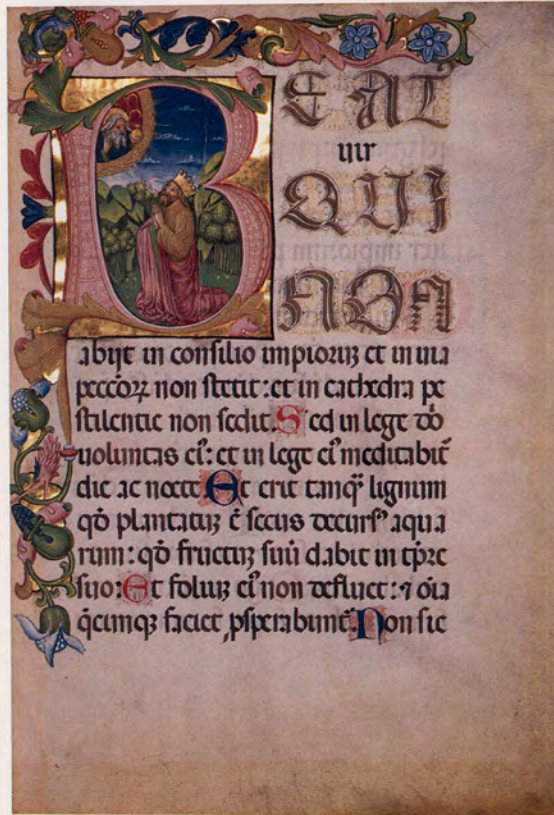 BEAT
uir
QUI
NON
abijt in consilio impioruꝫ et in uia
peccoꝝ non stetit: et in cathedra pe
stilentie non sedit. Sed in lege dō
uoluntas eiꝰ: et in lege eiꝰ meditabit᷑
die ac nocte Et erit tanq̄ lignum
qd̄ plantatuꝫ ē secus decursꝰ aqua
rum: qd̄ fructuꝫ suū dabit in tp̄re
suo: Et foliuꝫ eiꝰ non defluet: ⁊ oīa
q̄cunqꝫ faciet ꝓsperabunt᷑. Non sic